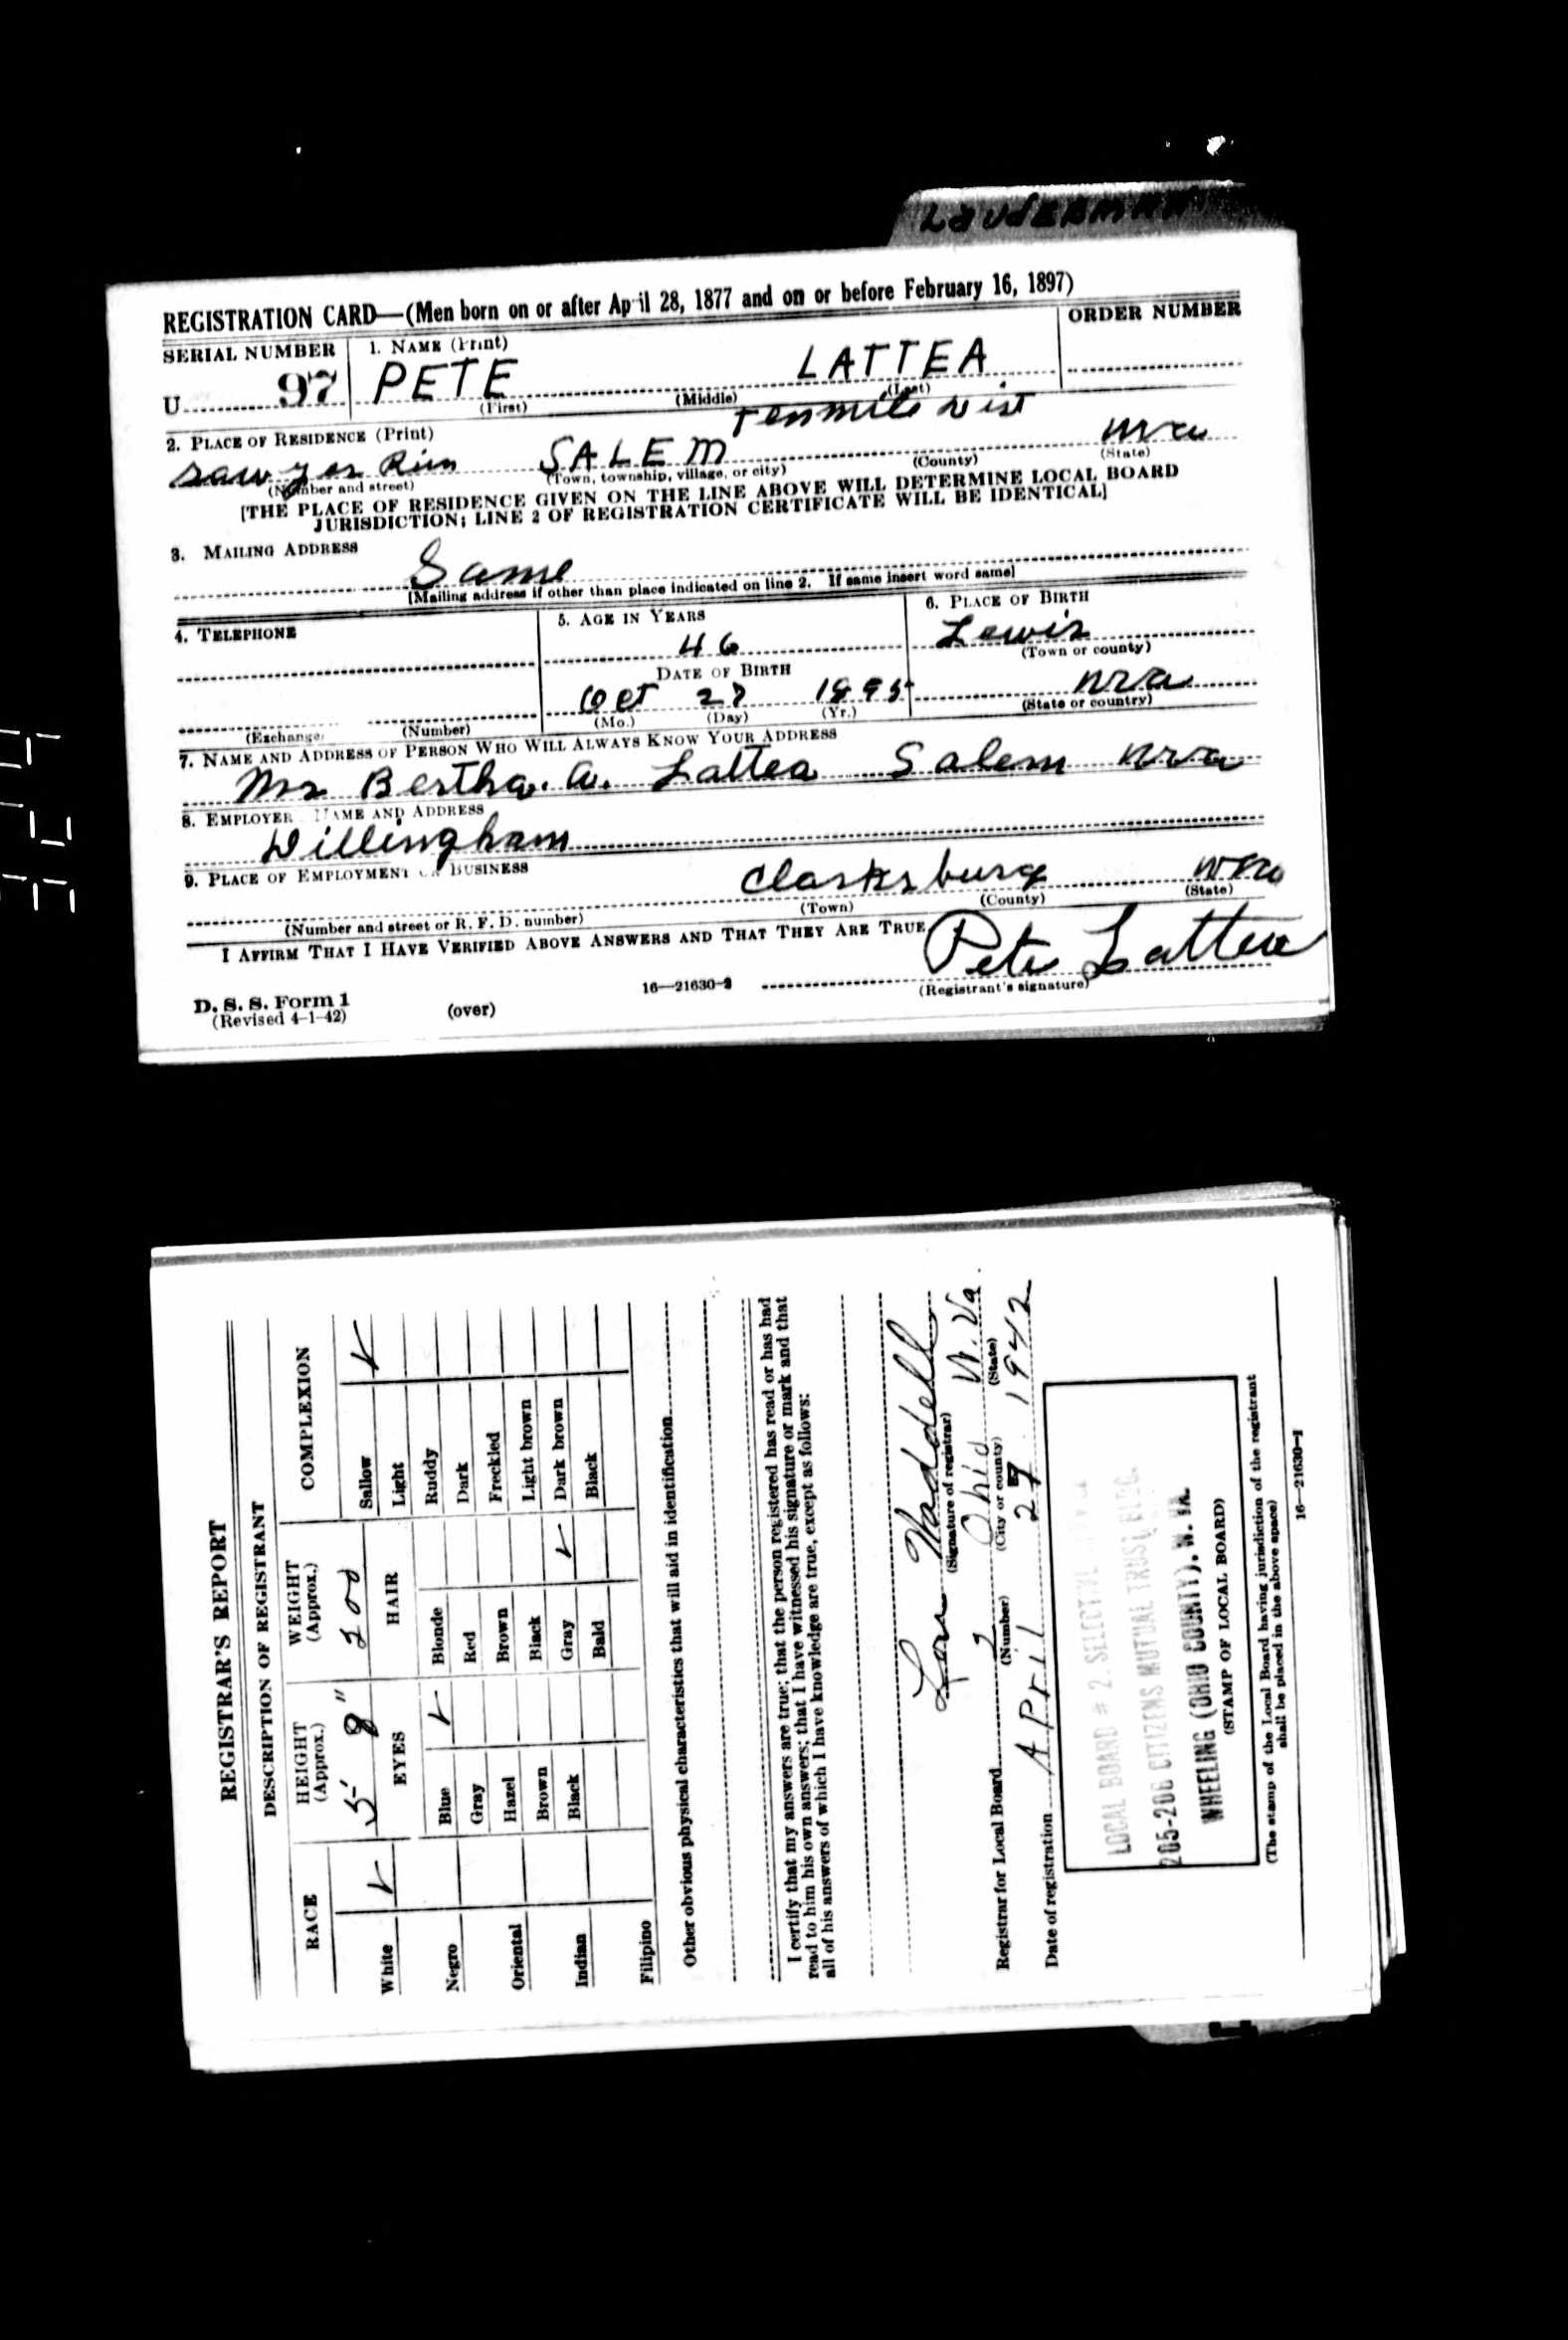 LaUdERMAN
REGISTRATION CARD—(Men born on or after April 28, 1877 and on or before February 16, 1897)
SERIAL NUMBER 1. NAME (Print) ORDER NUMBER
U 97 PETE LATTEA
(First) (Middle) (Last)
Tenmile Dist
2. PLACE OF RESIDENCE (Print)
Sawyer Run SALEM wva
(Number and street) (Town, township, village, or city) (County) (State)
[THE PLACE OF RESIDENCE GIVEN ON THE LINE ABOVE WILL DETERMINE LOCAL BOARD
JURISDICTION; LINE 2 OF REGISTRATION CERTIFICATE WILL BE IDENTICAL]
3. MAILING ADDRESS
Same
[Mailing address if other than place indicated on line 2. If same insert word same]
4. TELEPHONE 5. AGE IN YEARS 6. PLACE OF BIRTH
46 Lewis
DATE OF BIRTH (Town or county)
Oct 27 1895 wva
(Exchange) (Number) (Mo.) (Day) (Yr.) (State or country)
7. NAME AND ADDRESS OF PERSON WHO WILL ALWAYS KNOW YOUR ADDRESS
Mrs Bertha. A. Lattea Salem wva
8. EMPLOYER NAME AND ADDRESS
Dillingham
9. PLACE OF EMPLOYMENT OR BUSINESS
Clarksburg wva
(Number and street or R. F. D. number) (Town) (County) (State)
I AFFIRM THAT I HAVE VERIFIED ABOVE ANSWERS AND THAT THEY ARE TRUE
Pete Lattea
D. S. S. Form 1 16—21630-2 (Registrant's signature)
(Revised 4-1-42) (over)
REGISTRAR'S REPORT
DESCRIPTION OF REGISTRANT
RACE HEIGHT (Approx.) WEIGHT (Approx.) COMPLEXION
5' 8" 200
White ✓ EYES HAIR Sallow ✓
Light
Negro Blue ✓ Blonde Ruddy
Gray Red Dark
Oriental Hazel Brown Freckled
Brown Black Light brown
Indian Black Gray ✓ Dark brown
Bald Black
Filipino
Other obvious physical characteristics that will aid in identification
I certify that my answers are true; that the person registered has read or has had
read to him his own answers; that I have witnessed his signature or mark and that
all of his answers of which I have knowledge are true, except as follows:
Waddell
(Signature of registrar)
Registrar for Local Board 2 Ohio W. Va.
(Number) (City or county) (State)
Date of registration APril 27 1942
LOCAL BOARD # 2 SELECTIVE
205-206 CITIZENS MUTUAL TRUST BLDG.
WHEELING (OHIO COUNTY), W. VA.
(STAMP OF LOCAL BOARD)
(The stamp of the Local Board having jurisdiction of the registrant
shall be placed in the above space)
16—21630-1